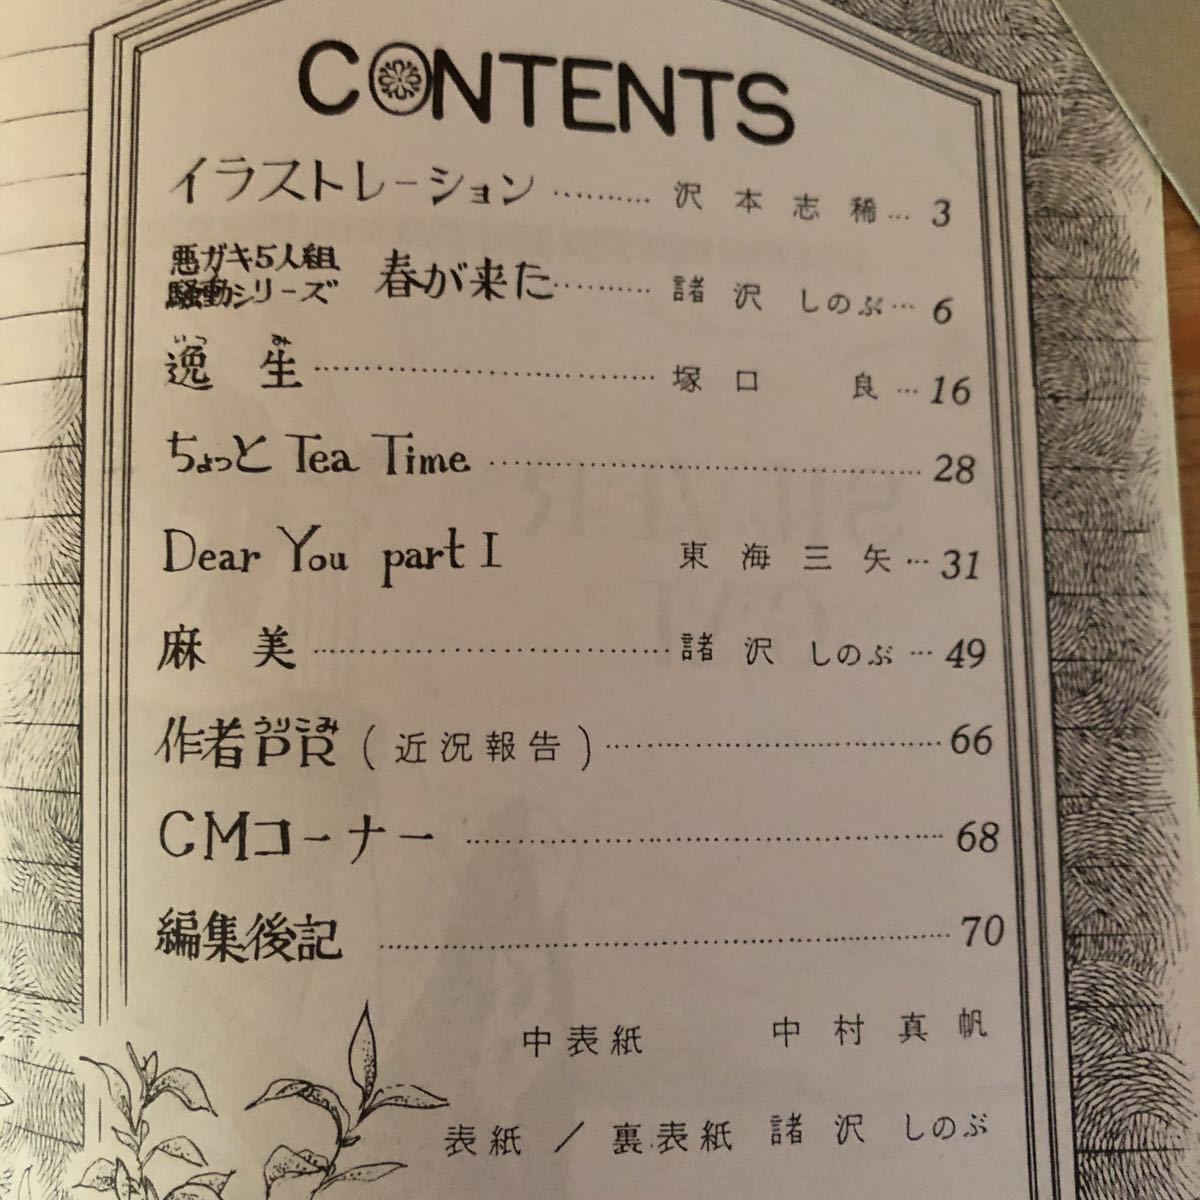 CONTENTS
イラストレーション………沢本志稀…3
悪ガキ5人組
騒動シリーズ 春が来た………諸沢しのぶ…6
いつ み
逸生………塚口 良…16
ちょっと Tea Time………28
Dear You part I 東海三矢…31
麻美………諸沢しのぶ…49
うりこみ
作者PR(近況報告)………66
CMコーナー………68
編集後記………70
中表紙 中村真帆
表紙/裏表紙 諸沢しのぶ